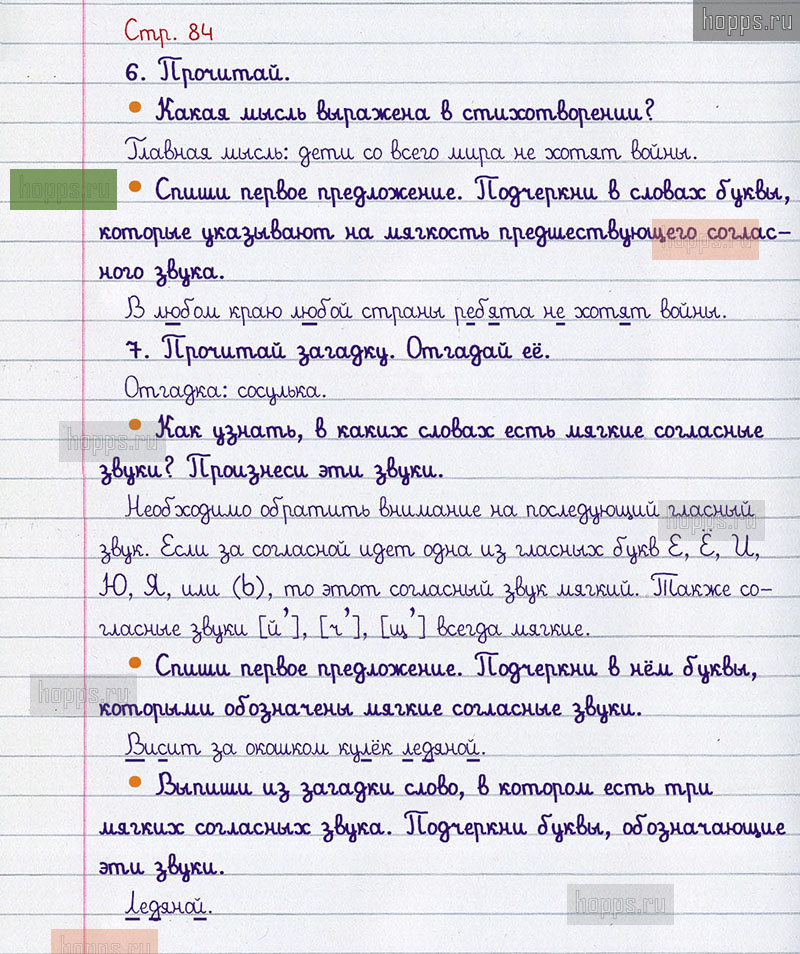 hopps.ru
Стр. 84
6. Прочитай.
• Какая мысль выражена в стихотворении?
Главная мысль: дети со всего мира не хотят войны.
hopps.ru
• Спиши первое предложение. Подчеркни в словах буквы,
которые указывают на мягкость предшествующего соглас-
hopps.ru
ного звука.
В любом краю любой страны ребята не хотят войны.
7. Прочитай загадку. Отгадай её.
Отгадка: сосулька.
• Как узнать, в каких словах есть мягкие согласные
hopps.ru
звуки? Произнеси эти звуки.
Необходимо обратить внимание на последующий гласный
hopps.ru
звук. Если за согласной идет одна из гласных букв Е, Ё, И,
Ю, Я, или (ь), то этот согласный звук мягкий. Также со-
гласные звуки [й'], [ч'], [щ'] всегда мягкие.
• Спиши первое предложение. Подчеркни в нём буквы,
hopps.ru
которыми обозначены мягкие согласные звуки.
Висит за окошком кулёк ледяной.
• Выпиши из загадки слово, в котором есть три
мягких согласных звука. Подчеркни буквы, обозначающие
эти звуки.
Ледяной.
hopps.ru
hopps.ru